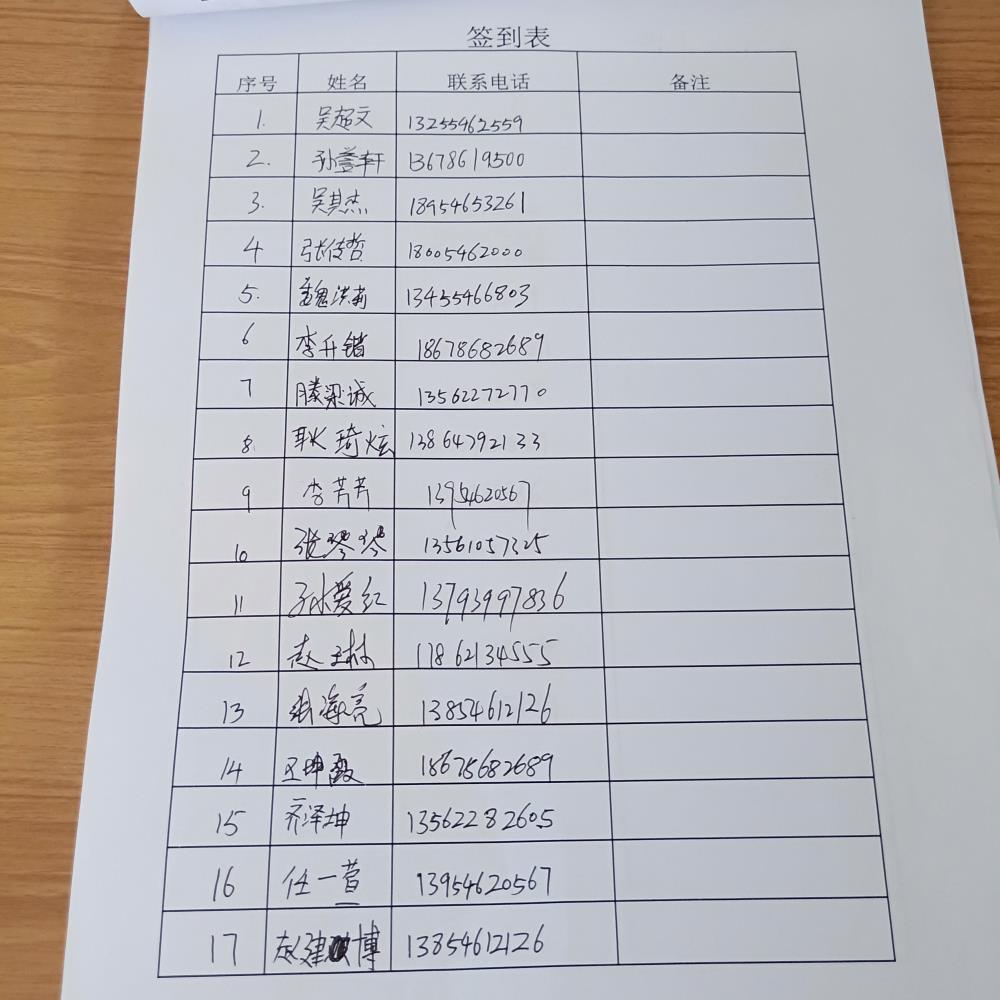 签到表
序号 姓名 联系电话 备注
1. 吴超文 13255462559
2. 孙萱轩 13678619500
3. 吴其杰 18954653261
4 张俊哲 18005462000
5. 魏洪莉 13455466803
6 李升锴 18678682689
7 滕梁诚 13562272770
8. 耿琦炫 13864792133
9 李芳芳 13954620567
10 张琴琴 13561057325
11 孙爱红 13793997836
12 赵玉林 17862134555
13 海亮 13854612126
14 王坤 18678682689
15 齐泽坤 13562282605
16 任一萱 13954620567
17 赵建博 13854612126